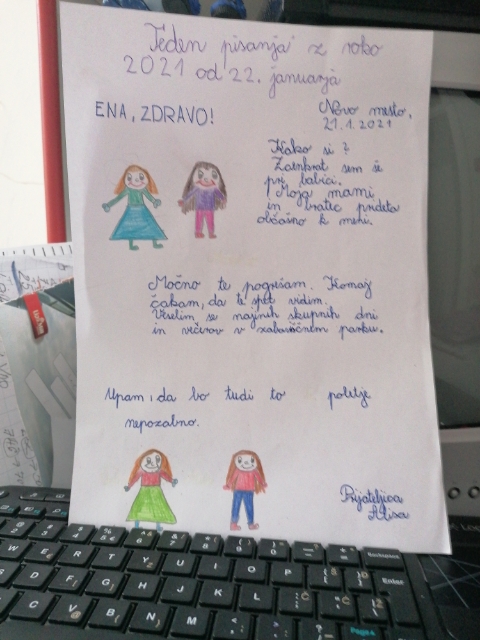 Teden pisanja z roko
2021 od 22. januarja
ENA, ZDRAVO!
Novo mesto,
21.1.2021
Kako si?
Zaenkrat sem še
pri babici.
Moja mami
in bratec prideta
občasno k meni.
Močno te pogrešam. Komaj
čakam, da te spet vidim.
Veselim se najinih skupnih dni
in večerov v zabaviščnem parku.
Upam, da bo tudi to poletje
nepozabno.
Prijateljica
Alisa
W E R T Z U I O P
D F G H J K L
C V B N M
Backspace
Enter